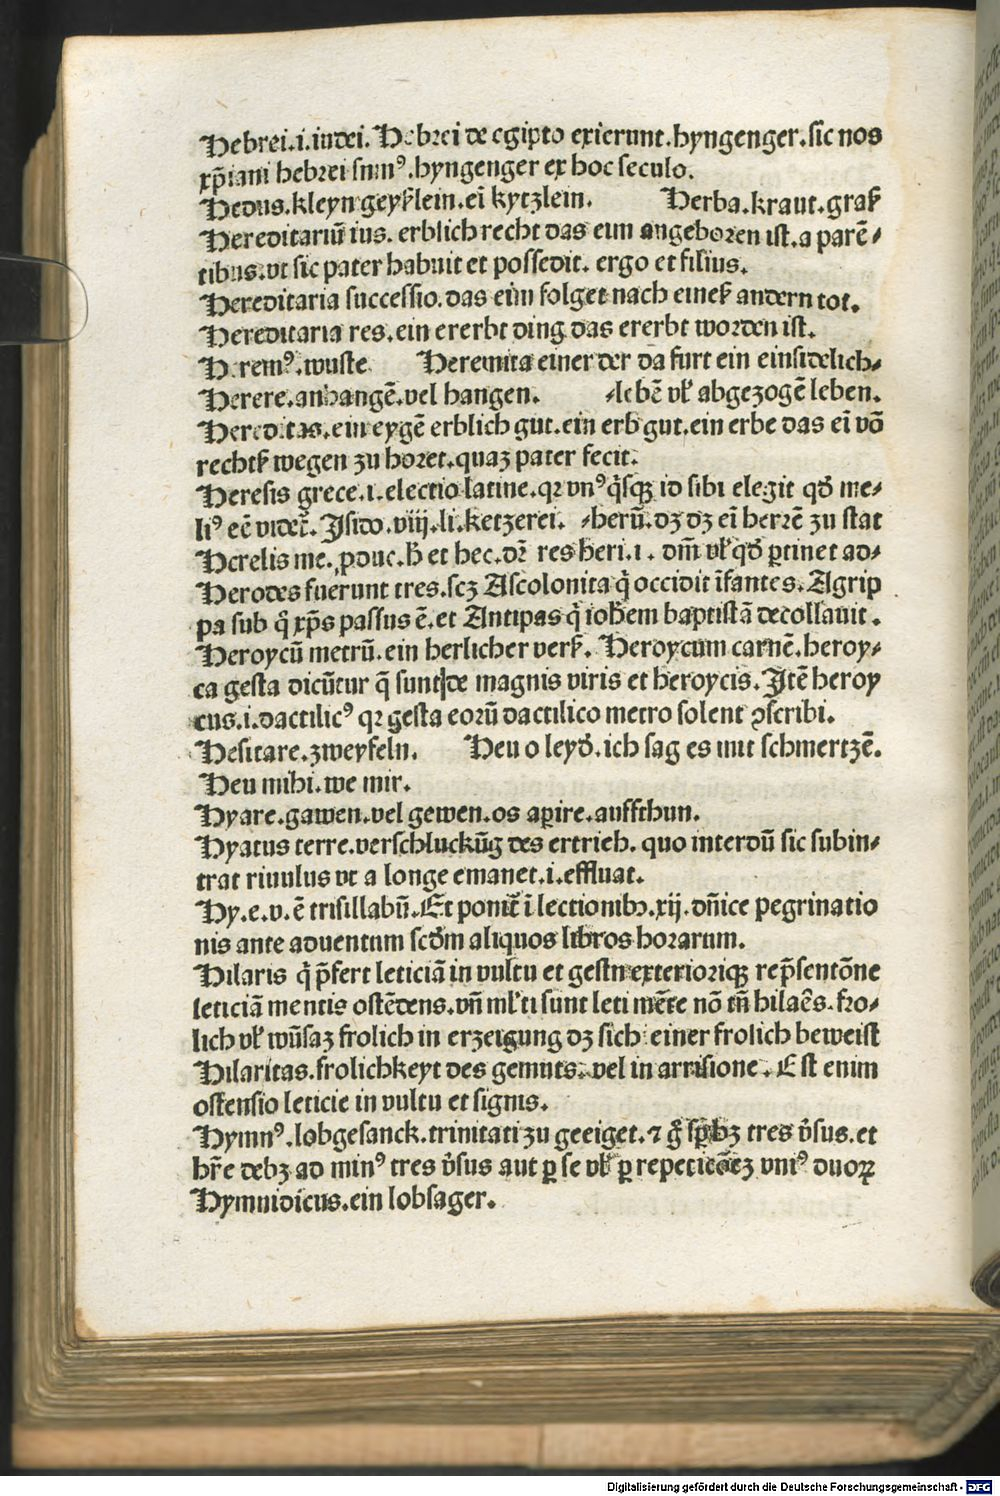 Hebrei.i.iudei. Hebrei de egipto exierunt.hyngenger.sic nos
xp̄iani hebrei sumꝰ.hyngenger ex hoc seculo.
Hedus.kleyn geyſzlein.eī kytzlein. Herba.kraut.graſz
Hereditariū ius. erblich recht das eim angeboren ist.a parē⸗
tibus.vt sic pater habuit et possedit. ergo et filius.
Hereditaria successio.das eim folget nach eineſz andern tot.
Hereditaria res.ein ererbt ding das ererbt worden ist.
Heremꝰ.wuste Heremita einer der da furt ein einsidelich⸗
Herere.anhangē.vel hangen. ⸗lebē vl̕ abgezogē leben.
Hereditas.ein eygē erblich gut.ein erb gut.ein erbe das eī vō
rechtſz wegen zu horet.quaz pater fecit.
Heresis grece.i.electio latine.qꝛ vnꝰq̇sqꝫ id sibi elegit qd̄ me⸗
liꝰ eē videt̄. Isido.viij.li.ketzerei. ⸗herū.dz dz eī herrē zu stat
Herelis me.ꝓduc.h̄ et hec.dr̄ res heri.i. dm̄ vl̕ qd̄ ꝑtinet ad⸗
Herodes fuerunt tres.scz Ascolonita q̇ occidit īfantes.Agrip
pa sub q̄ xp̄s passus ē.et Antipas q̇ ioh̄em baptistā decollauit.
Heroycū metrū.ein herlicher verſz. Heroycum carmē.heroy⸗
ca gesta dicūtur q̄ sunt de magnis viris et heroycis.Itē heroy
cus.i.dactilicꝰ qꝛ gesta eorū dactilico metro solent ꝯscribi.
Hesitare.zweyfeln. Heu o leyd̄.ich sag es mit schmertzē.
Heu mihi.we mir.
Hyare.gawen.vel gewen.os aꝑire.auffthun.
Hyatus terre.verschluckūg des ertrich. quo interdū sic subin⸗
trat riuulus vt a longe emanet.i.effluat.
Hy.e.v.ē trisillabū.Et ponit̄ ī lectionibꝫ.xij.dn̄ice pegrinatio
nis ante aduentum scd̄m aliquos libros horarum.
Hilaris q̇ p̄fert leticiā in vultu et gestu exteriorique rep̄sentōne
leticiā mentis ostēdens.vn̄ ml̕ti sunt leti mēte nō tn̄ hilaēs.fro⸗
lich vl̕ wūsaz frolich in erzeigung dz sich einer frolich beweist
Hilaritas.frolichkeyt des gemuts.vel in arrisione. Est enim
ostensio leticie in vultu et signis.
Hymnꝰ.lobgesanck.trinitati zu geeiget.⁊ q̄ sp̄ hꝫ tres v̇sus.et
hr̄e debꝫ ad minꝰ tres v̇sus aut ꝑ se vl̕ ꝑ repeticōez vniꝰ duoꝝ
Hymnidicus.ein lobsager.
Digitalisierung gefördert durch die Deutsche Forschungsgemeinschaft - DFG